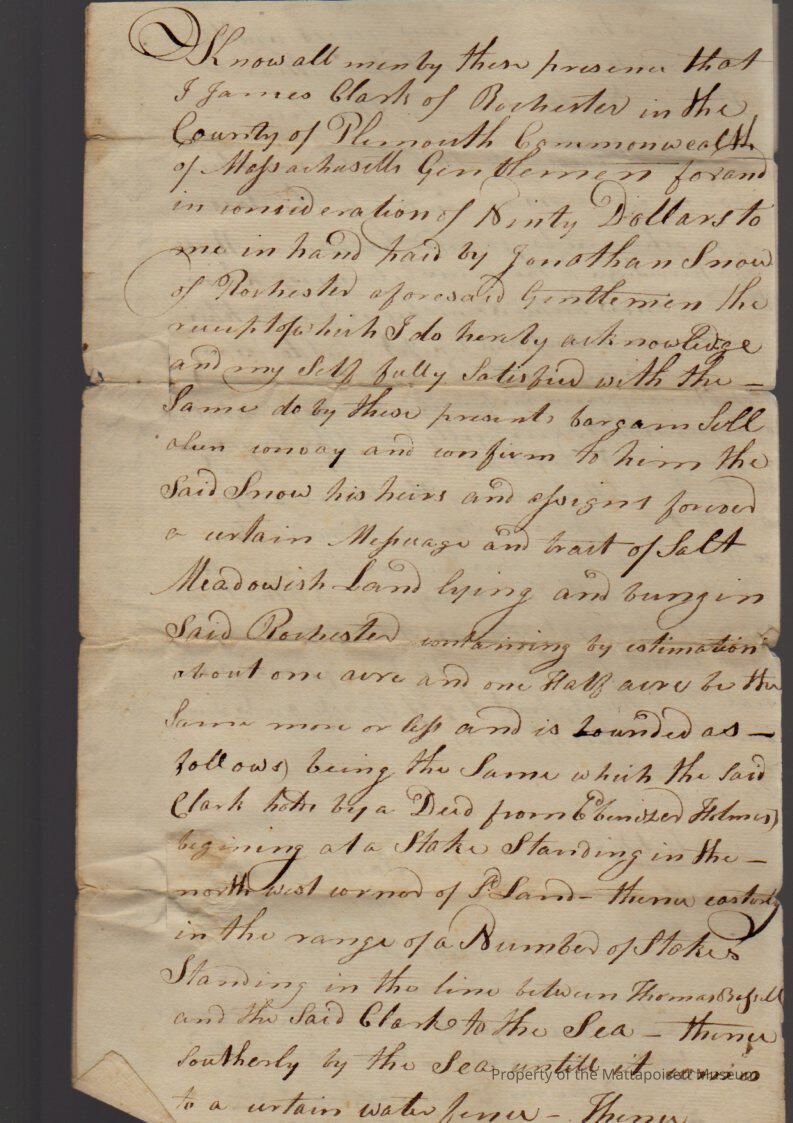 Know all men by these presence that
I James Clark of Rochester in the
County of Plimouth Commonwealth
of Massachusetts Gentlemen for and
in consideration of Ninty Dollars to
me in hand paid by Jonathan Snow
of Rochester aforesaid Gentlemen the
receipt of which I do hereby acknowledge
and my Self fully Satisfied with the —
Same do by these presents bargain Sell
alien convay and confirm to him the
Said Snow his heirs and assigns forever
a certain Messuage and tract of Salt
Meadowish Land lying and being in
Said Rochester containing by estimation
about one acre and one Half acre be the
Same more or less and is bounded as —
follows) being the Same which the Said
Clark hath by a Deed from Ebenezer Holmes)
begining at a Stake Standing in the —
north west corner of Sd Land — thence easterly
in the range of a Number of Stakes
Standing in the line between Thomas
and the Said Clark to the Sea — thence
Southerly by the Sea untill it
to a certain water fence — Thence
Property of the Mattapoisett Museum